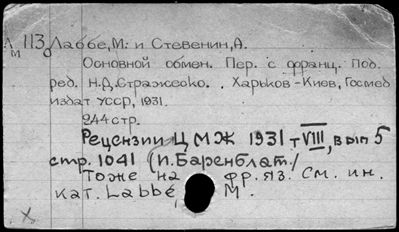 Л 113 Лаббе, М. и Стевенин, А.
М
Основной обмен. Пер. с франц. Под.
ред. Н.Д. Стражеско. Харьков-Киев, Госмед
издат УССР, 1931.
244 стр.
Рецензии ЦМЖ 1931 т VIII, вып 5
стр. 1041 (И. Баренблат./
Тоже на фр. яз. см. ин.
кат. Labbé, М.
X